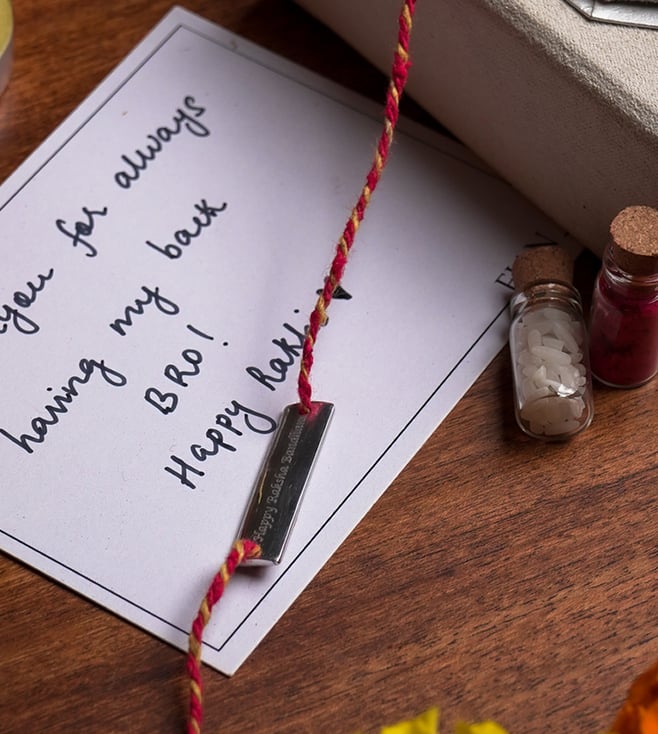 you for always
having my back
BRO!
Happy Rakhi
Happy Raksha Bandhan